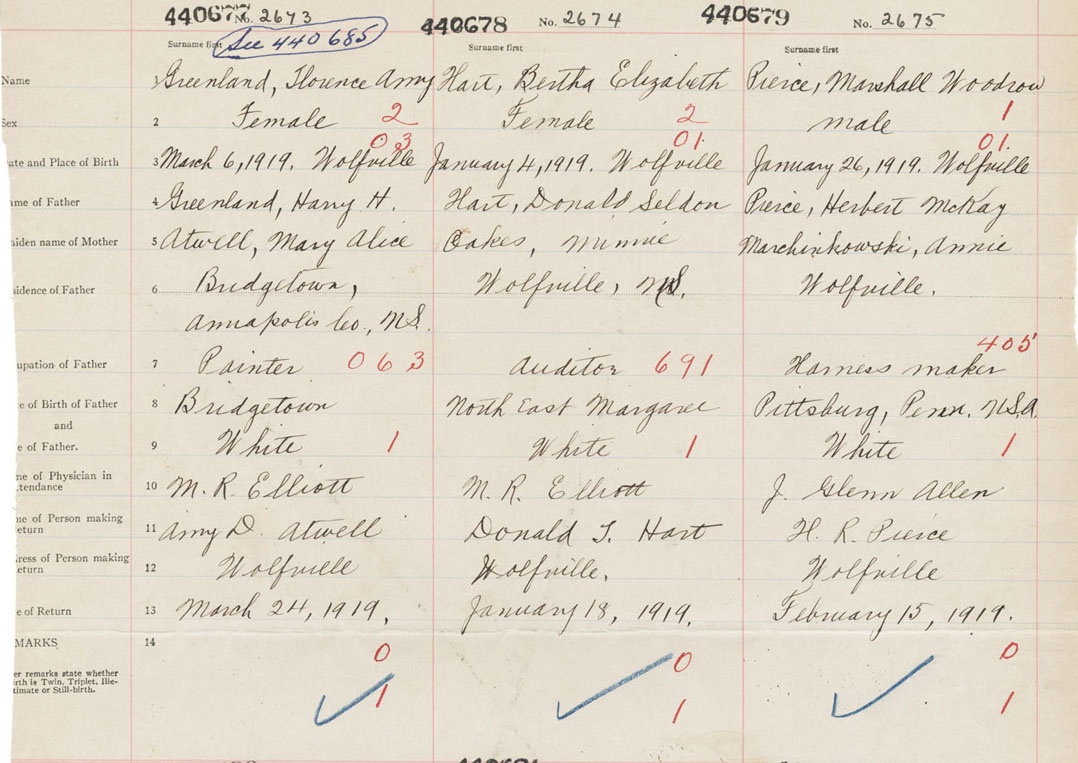 440677 No. 2673 440678 No. 2674 440679 No. 2675
See 440685
Surname first Surname first Surname first
Name 1 Greenland, Florence Amy Hart, Bertha Elizabeth Pierce, Marshall Woodrow
Sex 2 Female 2 Female 2 male 1
03 01 01
ate and Place of Birth 3 March 6, 1919. Wolfville January 4, 1919. Wolfville January 26, 1919. Wolfville
me of Father 4 Greenland, Harry H. Hart, Donald Seldon Pierce, Herbert McKay
aiden name of Mother 5 Atwell, Mary Alice Oakes, Minnie Marchinkowski, Annie
sidence of Father 6 Bridgetown, Wolfville, N.S. Wolfville.
Annapolis Co., N.S.
405
upation of Father 7 Painter 063 Auditor 691 Harness maker
e of Birth of Father 8 Bridgetown North East Margaree Pittsburg, Penn. U.S.A.
and
e of Father. 9 White 1 White 1 White 1
me of Physician in
ttendance 10 M. R. Elliott M. R. Elliott J. Glenn Allen
me of Person making
eturn 11 Amy D. Atwell Donald S. Hart H. R. Pierce
ress of Person making
eturn 12 Wolfville Wolfville. Wolfville
e of Return 13 March 24, 1919. January 18, 1919. February 15, 1919.
MARKS 14
0 0 0
er remarks state whether
rth is Twin, Triplet, Ille-
timate or Still-birth.
1 1 1